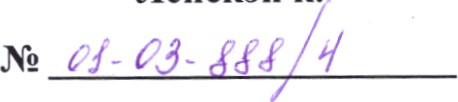 № 01-03-888/4